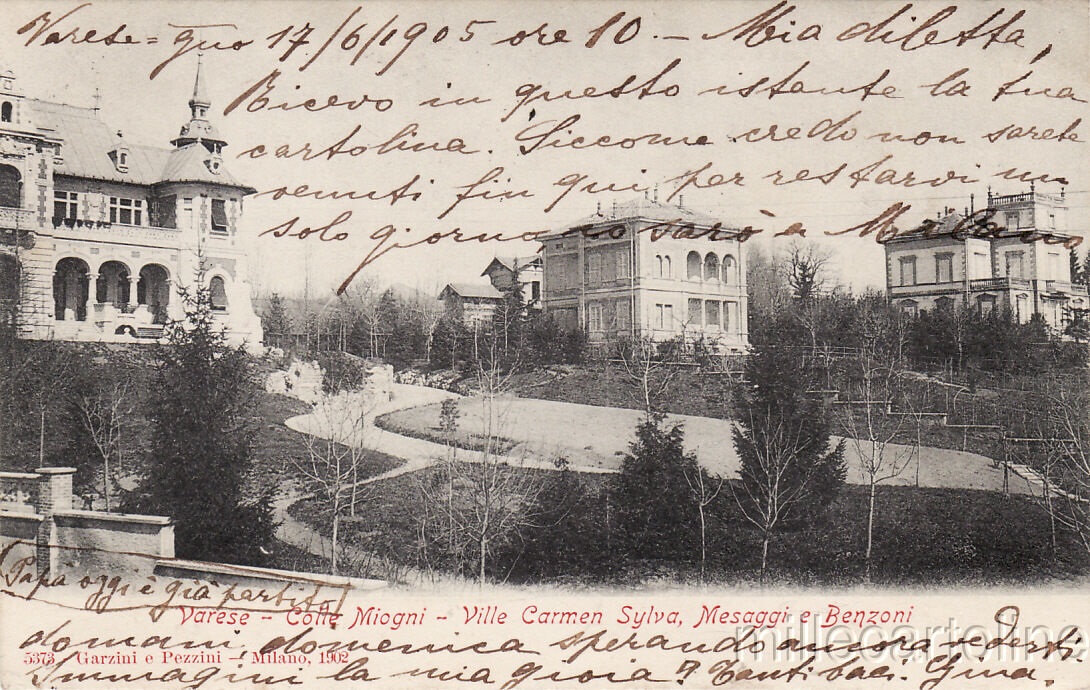 Varese = qno 17/6/1905 ore 10. - Mia diletta,
Ricevo in questo istante la tua
cartolina. Siccome credo non sarete
venuti fin qui per restarvi un
solo giorno sarò a Milano
Papà oggi è già partito
Varese - Colle Miogni - Ville Carmen Sylva, Mesaggi e Benzoni
domani, domenica sperando ancora vederti.
5373 Garzini e Pezzini - Milano, 1902
Immagini la mia gioia? Tanti baci. Gina.
millecartoline